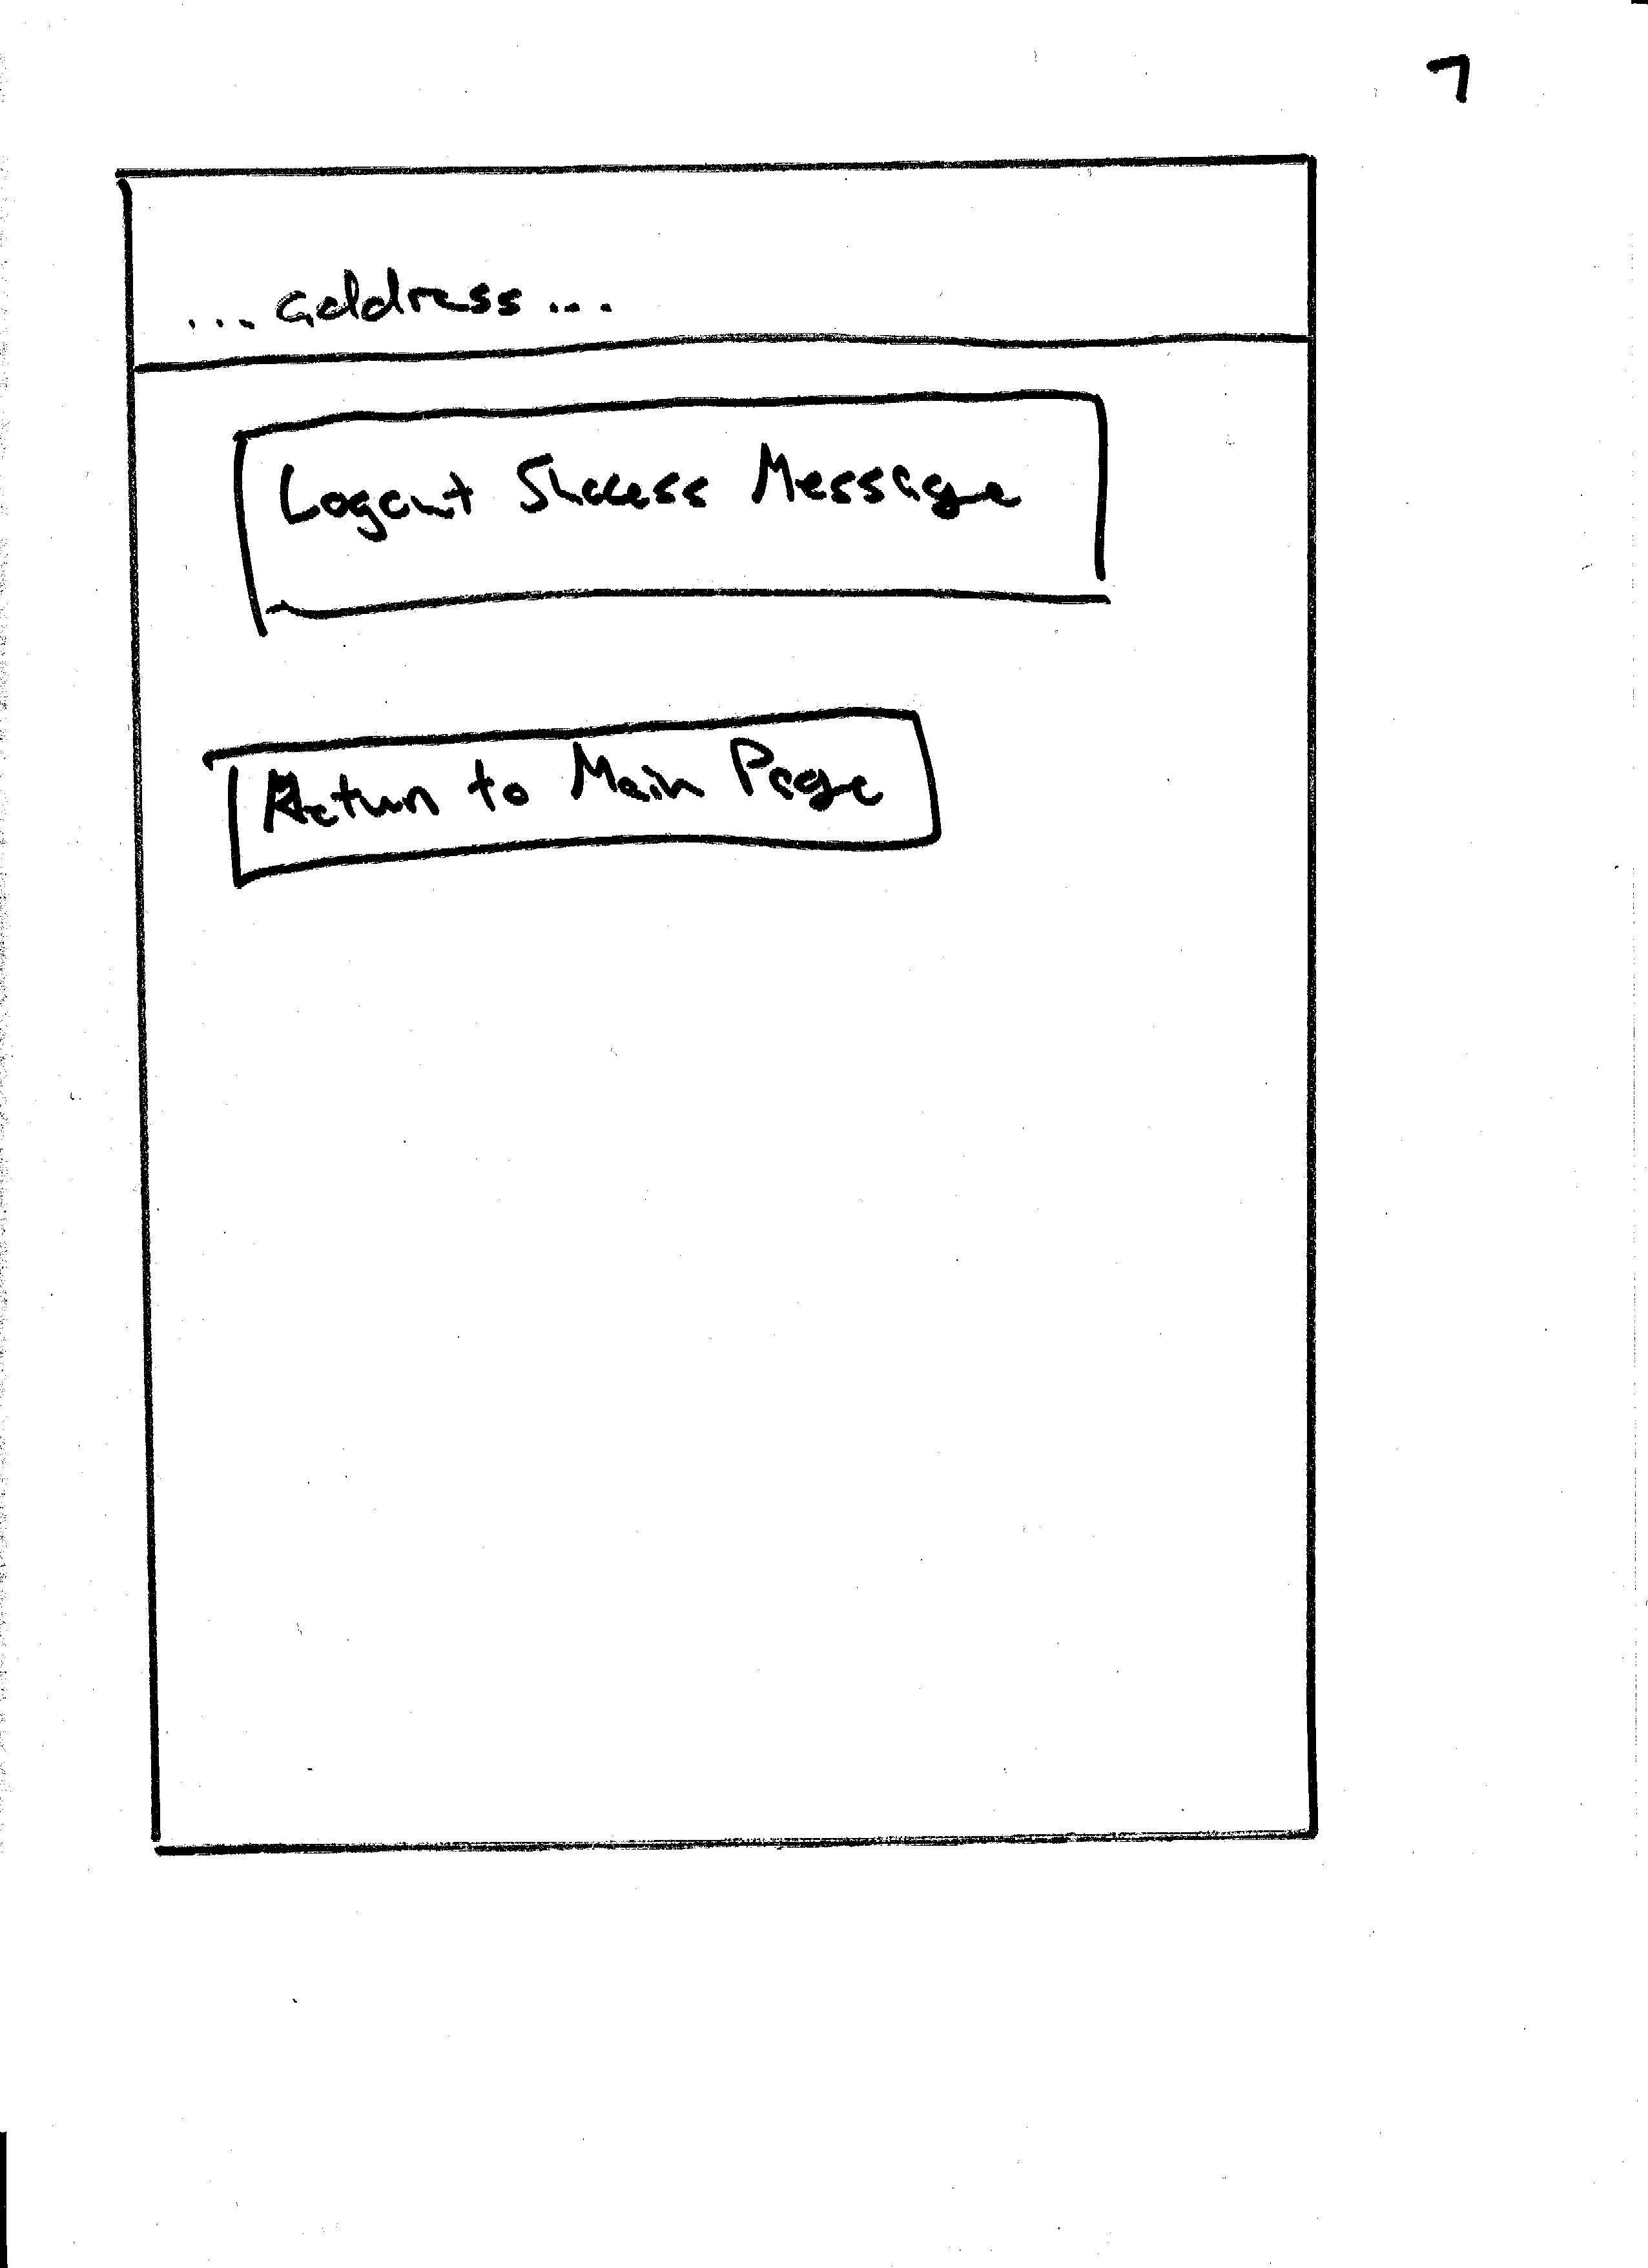 7
... address ...
Logout Success Message
Return to Main Page